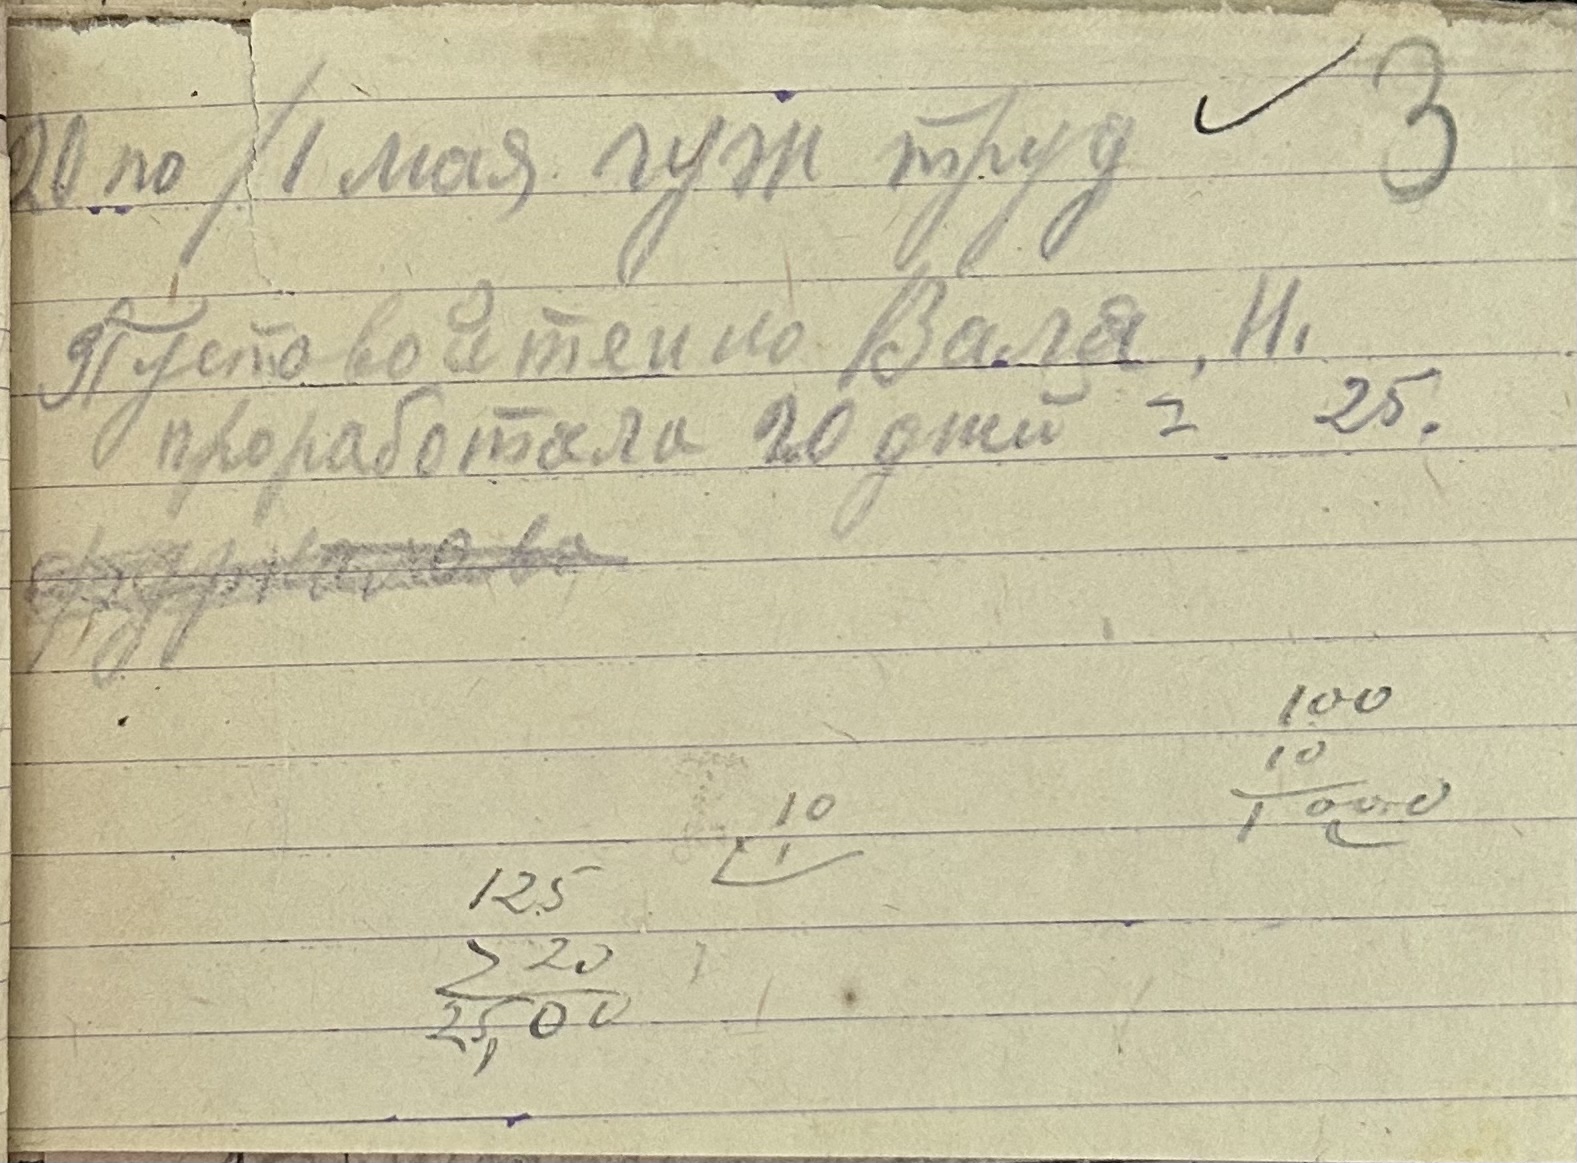 20 по 1 мая гуж труд ✓ 3
Пустовойтенко Валя. Н.
проработала 20 дней = 25.
100
10
1000
10
1
125
20
25,00